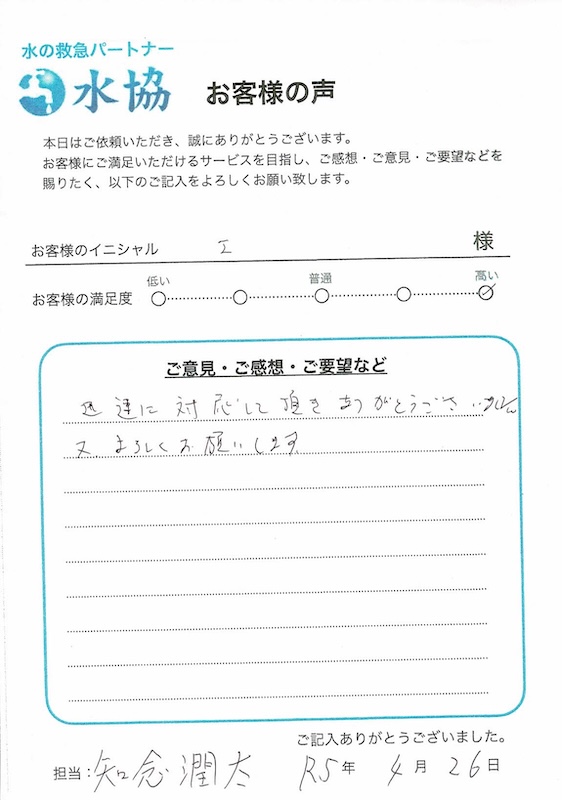 水の救急パートナー
水協 お客様の声
本日はご依頼いただき、誠にありがとうございます。
お客様にご満足いただけるサービスを目指し、ご感想・ご意見・ご要望などを
賜りたく、以下のご記入をよろしくお願い致します。
お客様のイニシャル I 様
低い 普通 高い
お客様の満足度
ご意見・ご感想・ご要望など
迅速に対応して頂きありがとうございました
又よろしくお願いします
ご記入ありがとうございました。
担当：知念潤太 R5年 4月 26日